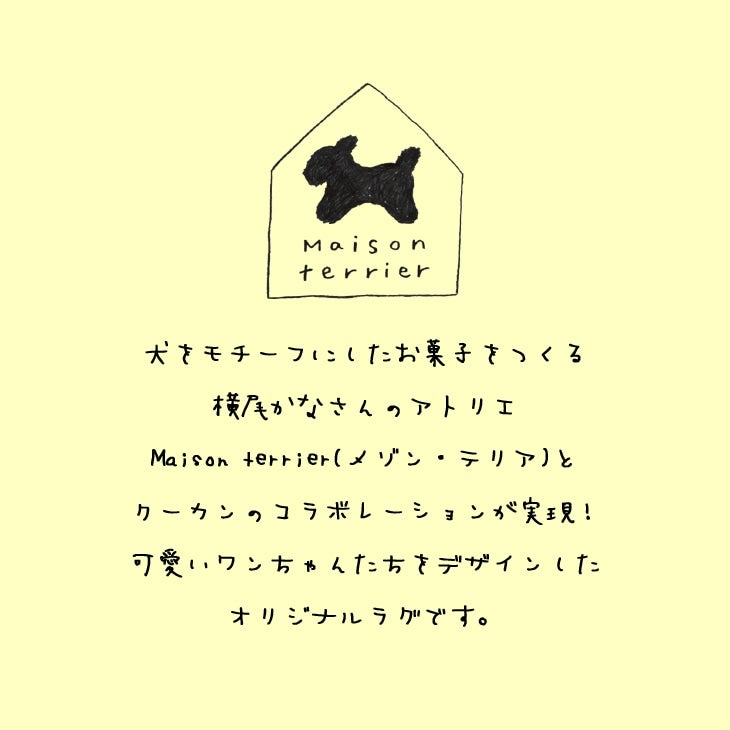 Maison
terrier
犬をモチーフにしたお菓子をつくる
横尾かなさんのアトリエ
Maison terrier(メゾン・テリア)と
クーカンのコラボレーションが実現!
可愛いワンちゃんた方をデザインした
オリジナルラグです。